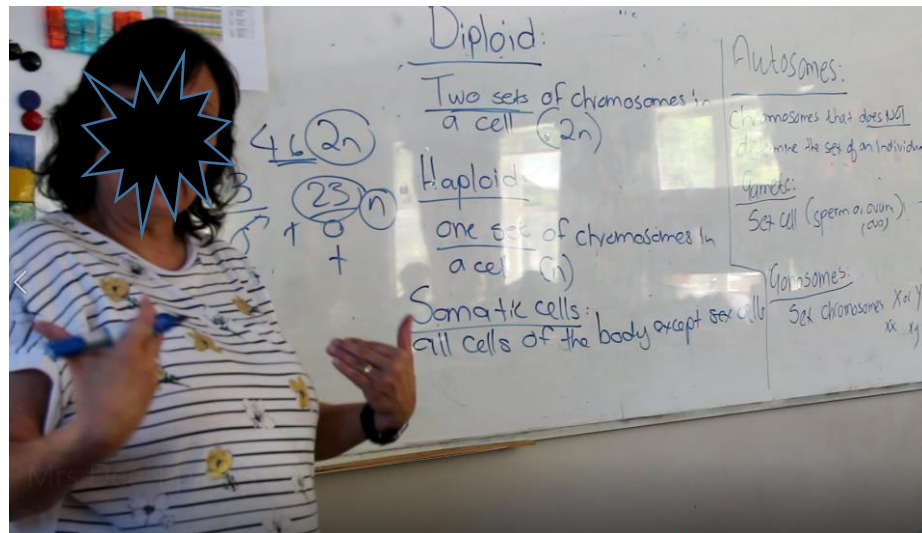 Diploid:
Two sets of chromosomes in
a cell (2n)
Haploid:
one set of chromosomes in
a cell (n)
Somatic cells:
all cells of the body except sex cells
46 2n
3 23 n
♂ + ♀
Autosomes:
Chromosomes that does NOT
determine the sex of an individual
Gamete:
Sex cell (sperm or ovum)
(ova)
Gonosomes:
Sex chromosomes X or Y
xx xy
Mrs